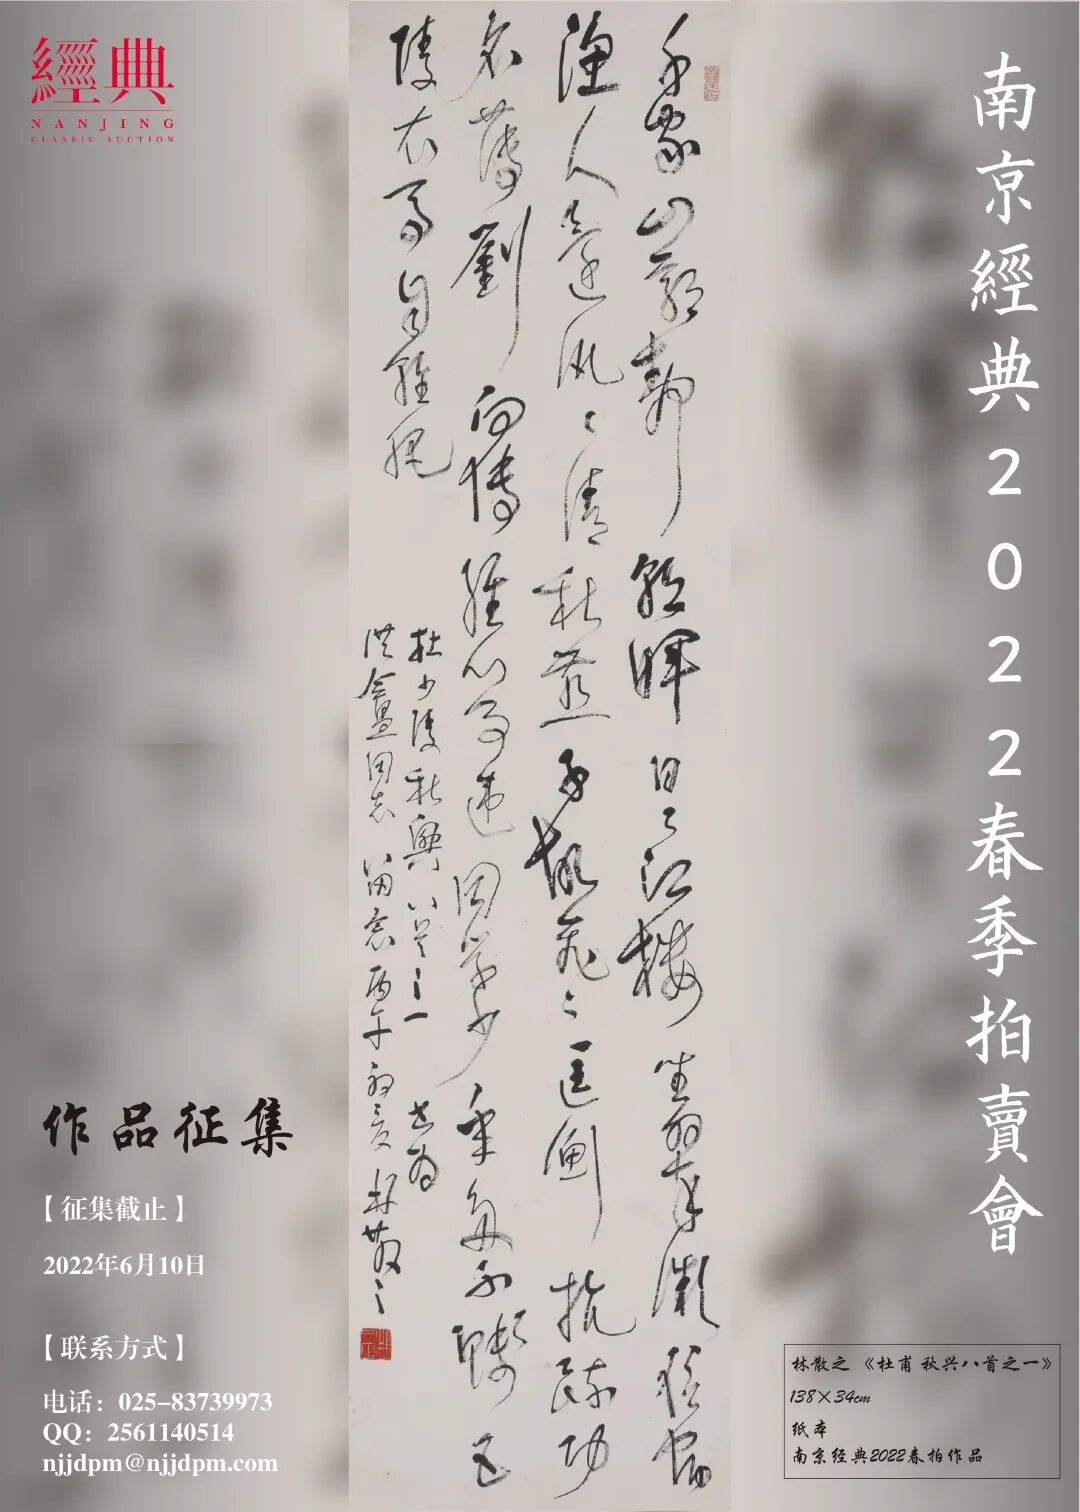 經典
NANJING
CLASSIC AUCTION
南京經典2022春季拍賣會
千家山郭靜朝暉日々江樓坐翠微信宿
漁人還汎々清秋燕子故飛々匡衡抗疏功
名薄劉向傳經心事違同學少年多不賤五
陵衣馬自輕肥
杜少陵秋興八首之一 书为
同志留念 丙午初夏 林散之
作品征集
【征集截止】
2022年6月10日
【联系方式】
电话：025-83739973
QQ：2561140514
njjdpm@njjdpm.com
林散之 《杜甫 秋兴八首之一》
138×34cm
纸本
南京经典2022春拍作品